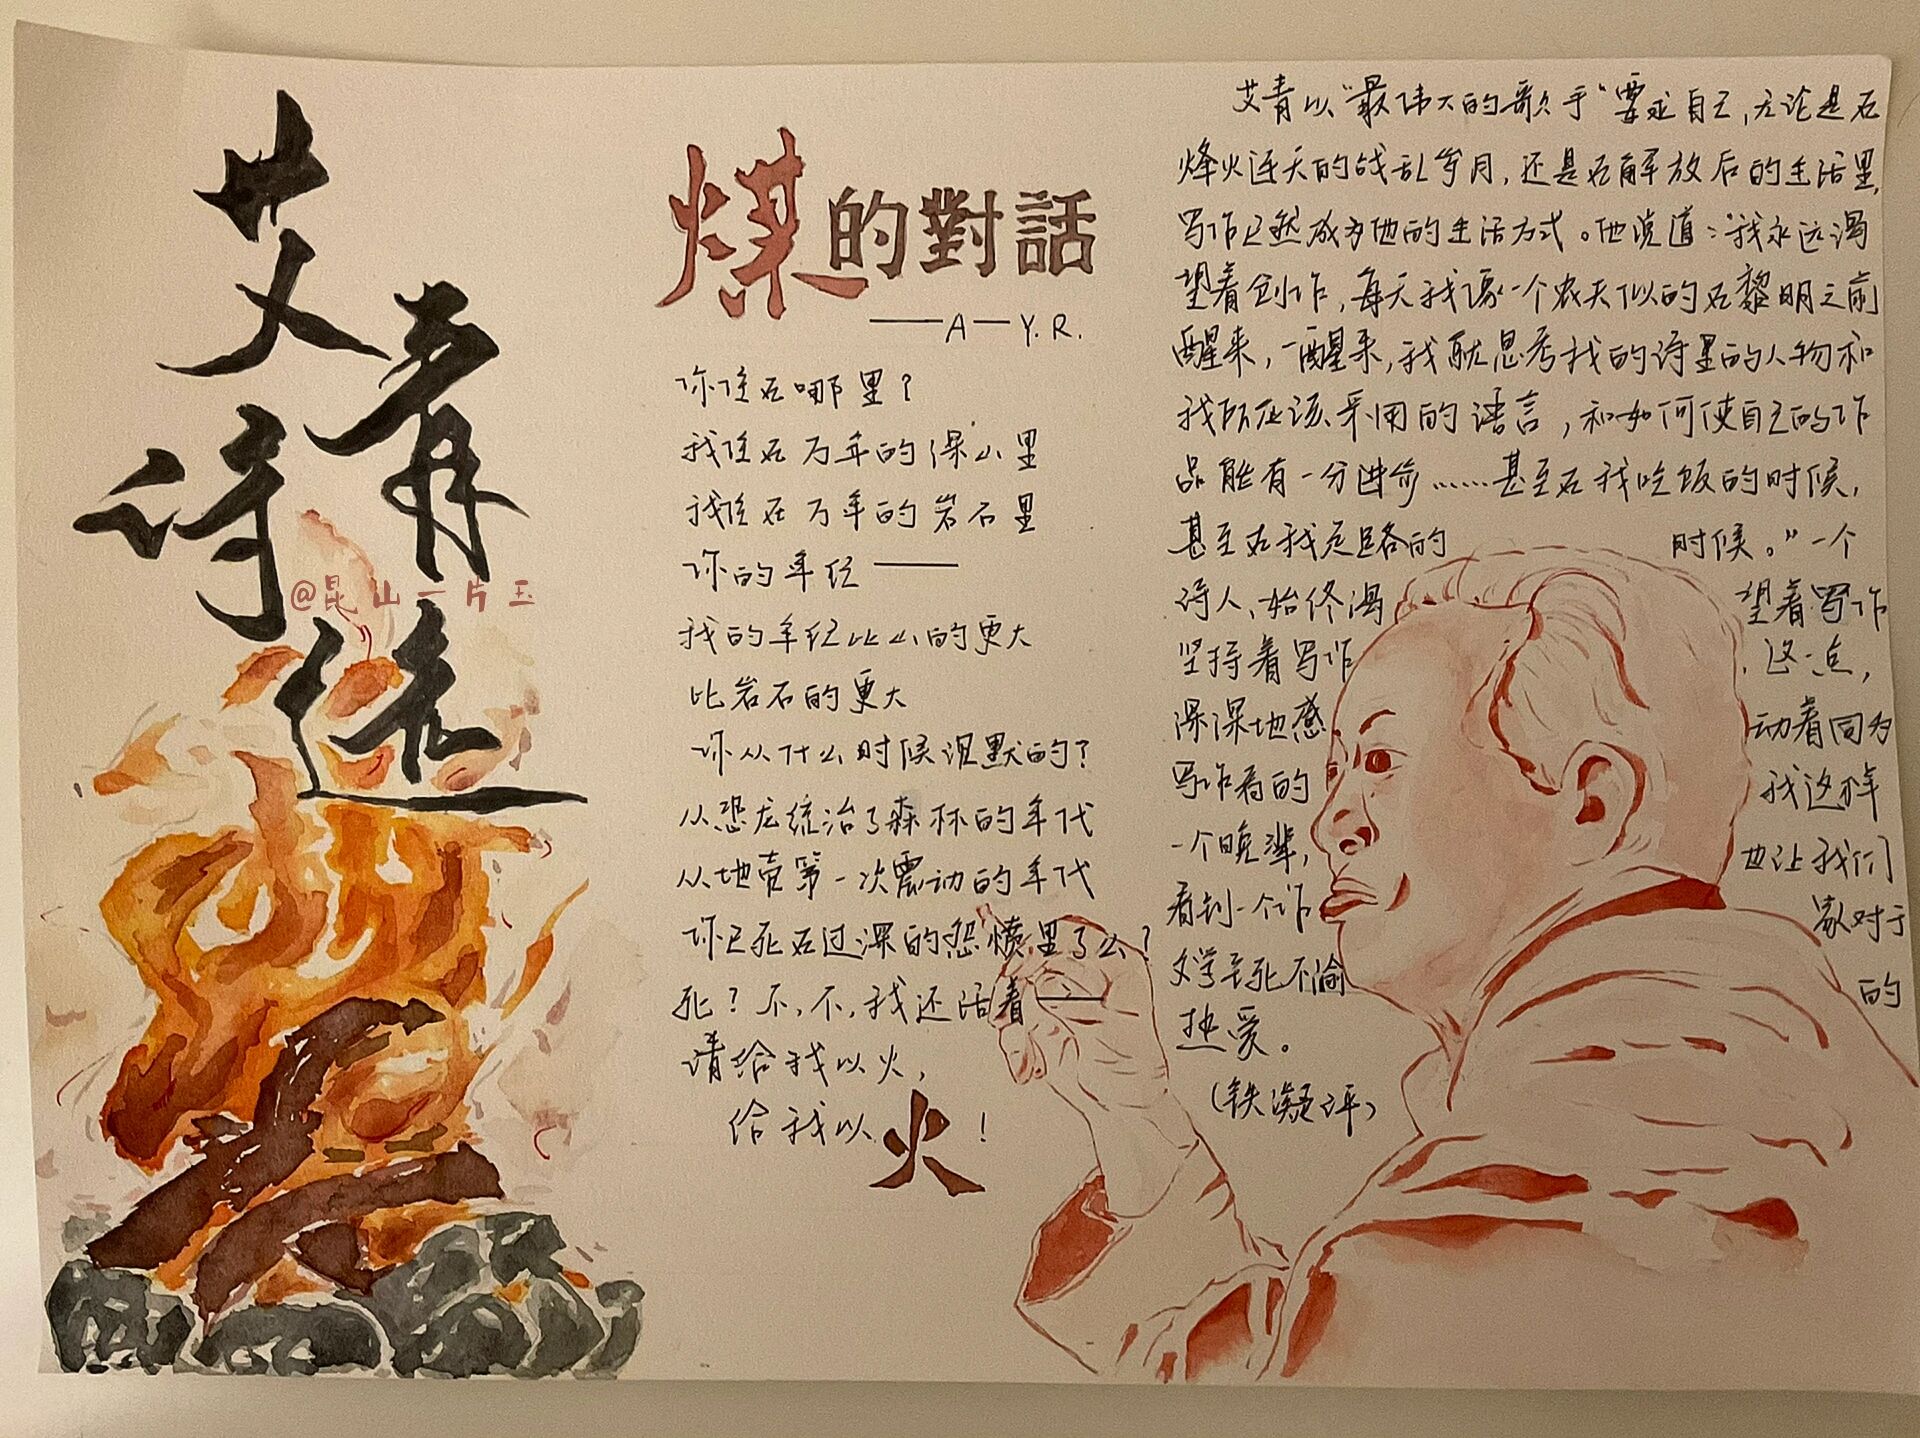 艾青
诗选
@昆山一片玉
煤的對話
——A—Y.R.
你住在哪里？
我住在万年的深山里
我住在万年的岩石里
你的年纪——
我的年纪比山的更大
比岩石的更大
你从什么时候沉默的？
从恐龙统治了森林的年代
从地壳第一次震动的年代
你已死在过深的怨愤里了么？
死？不，不，我还活着——
请给我以火，
给我以火！
艾青以“最伟大的歌手”要求自己，无论是在
烽火连天的战乱岁月，还是在解放后的生活里，
写作已然成为他的生活方式。他说道：“我永远渴
望着创作，每天我像一个农夫似的在黎明之前
醒来，一醒来，我就思考我的诗里的人物和
我所应该采用的语言，和如何使自己的作
品能有一分进步……甚至在我吃饭的时候，
甚至在我走路的时候。”一个
诗人，始终渴望着写作
坚持着写作，这一点，
深深地感动着同为
写作者的我这样
一个晚辈，也让我们
看到一个作家对于
文学至死不渝的
热爱。
（铁凝评）